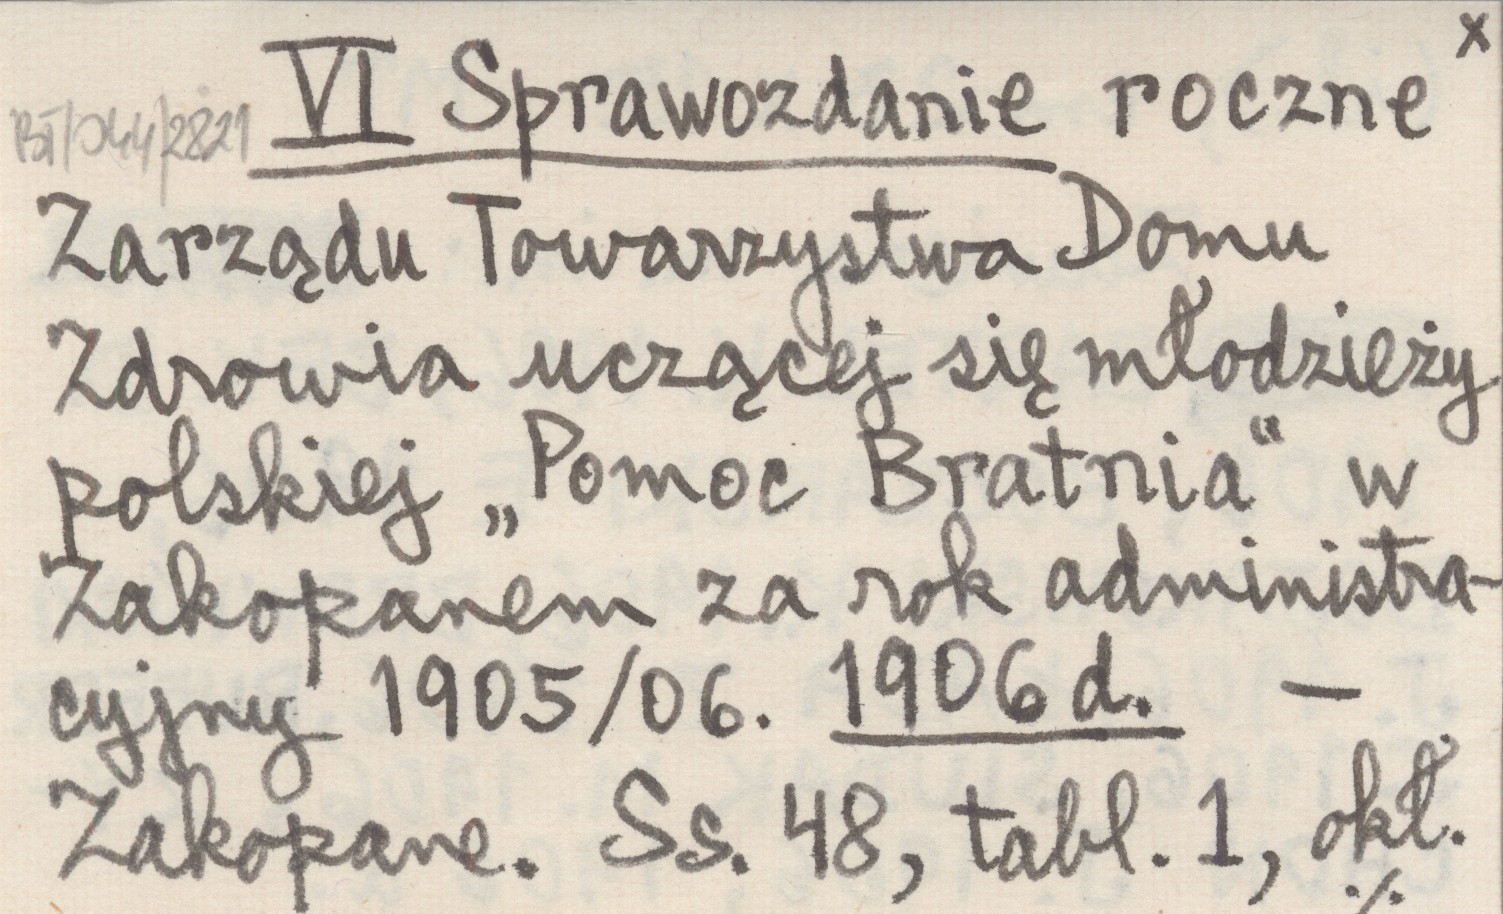 x
VI Sprawozdanie roczne
Zarządu Towarzystwa Domu
Zdrowia uczącej się młodzieży
polskiej „Pomoc Bratnia“ w
Zakopanem za rok administra-
cyjny 1905/06. 1906 d. —
Zakopane. Ss. 48, tabl. 1, okł.
./.